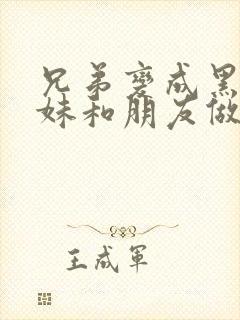 兄弟变成黑
妹和朋友做
王成军